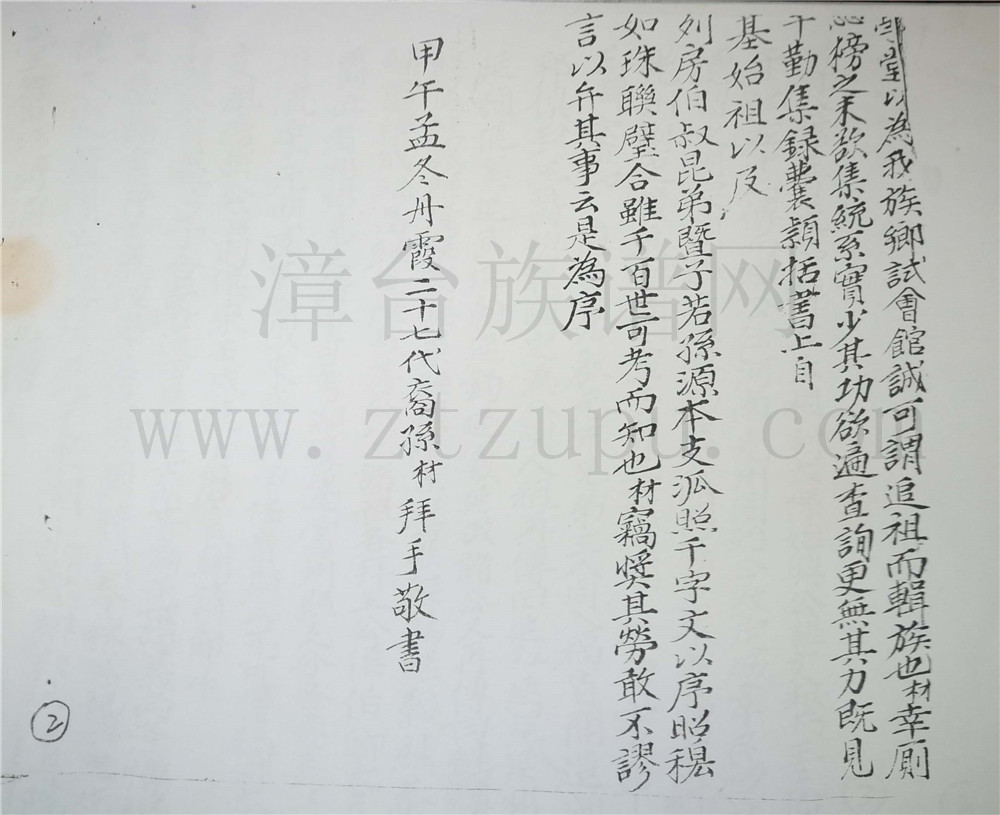 堂以為我族鄉試會館誠可謂追祖而輯族也材幸廁
榜之末欲集統系實少其功欲遍查詢更無其力既見
千勤集録囊頴括蓍上自
基始祖以及
列房伯叔昆弟暨子若孫源本支派照千字文以序昭穆
如珠聯璧合雖千百世可考而知也材竊奬其勞敢不謬
言以弁其事云是為序
甲午孟冬丹霞二十七代裔孫材拜手敬書
漳台族谱网
www.ztzupu.com
2